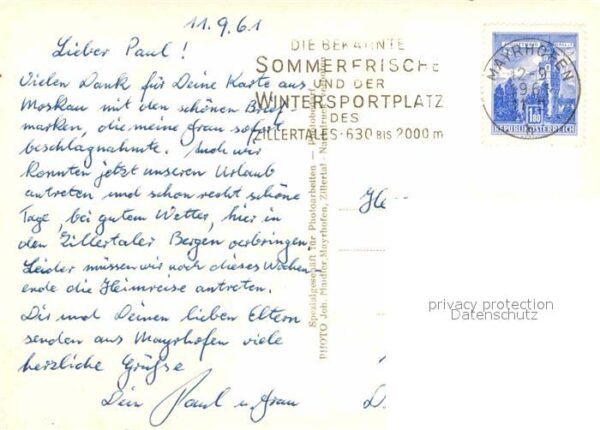 11.9.61
Lieber Paul!
Vielen Dank für Deine Karte aus
Moskau mit den schönen Brief-
marken, die meine Frau sofort
beschlagnahmte. Auch wir
konnten jetzt unseren Urlaub
antreten und schon recht schöne
Tage, bei gutem Wetter, hier in
den Zillertaler Bergen verbringen.
Leider müssen wir noch dieses Wochen-
ende die Heimreise antreten.
Dir und Deinen lieben Eltern
senden aus Mayrhofen viele
herzliche Grüße
Dein Paul u. Frau
DIE BEKANNTE
SOMMERFRISCHE
UND DER
WINTERSPORTPLATZ
DES
ZILLERTALES·630 BIS 2000 m
MAYRHOFEN
REPUBLIK ÖSTERREICH
1.80
Spezialgeschäft für Photoarbeiten
PHOTO Joh. Mayrhofen, Zillertal
He
D
privacy protection
Datenschutz